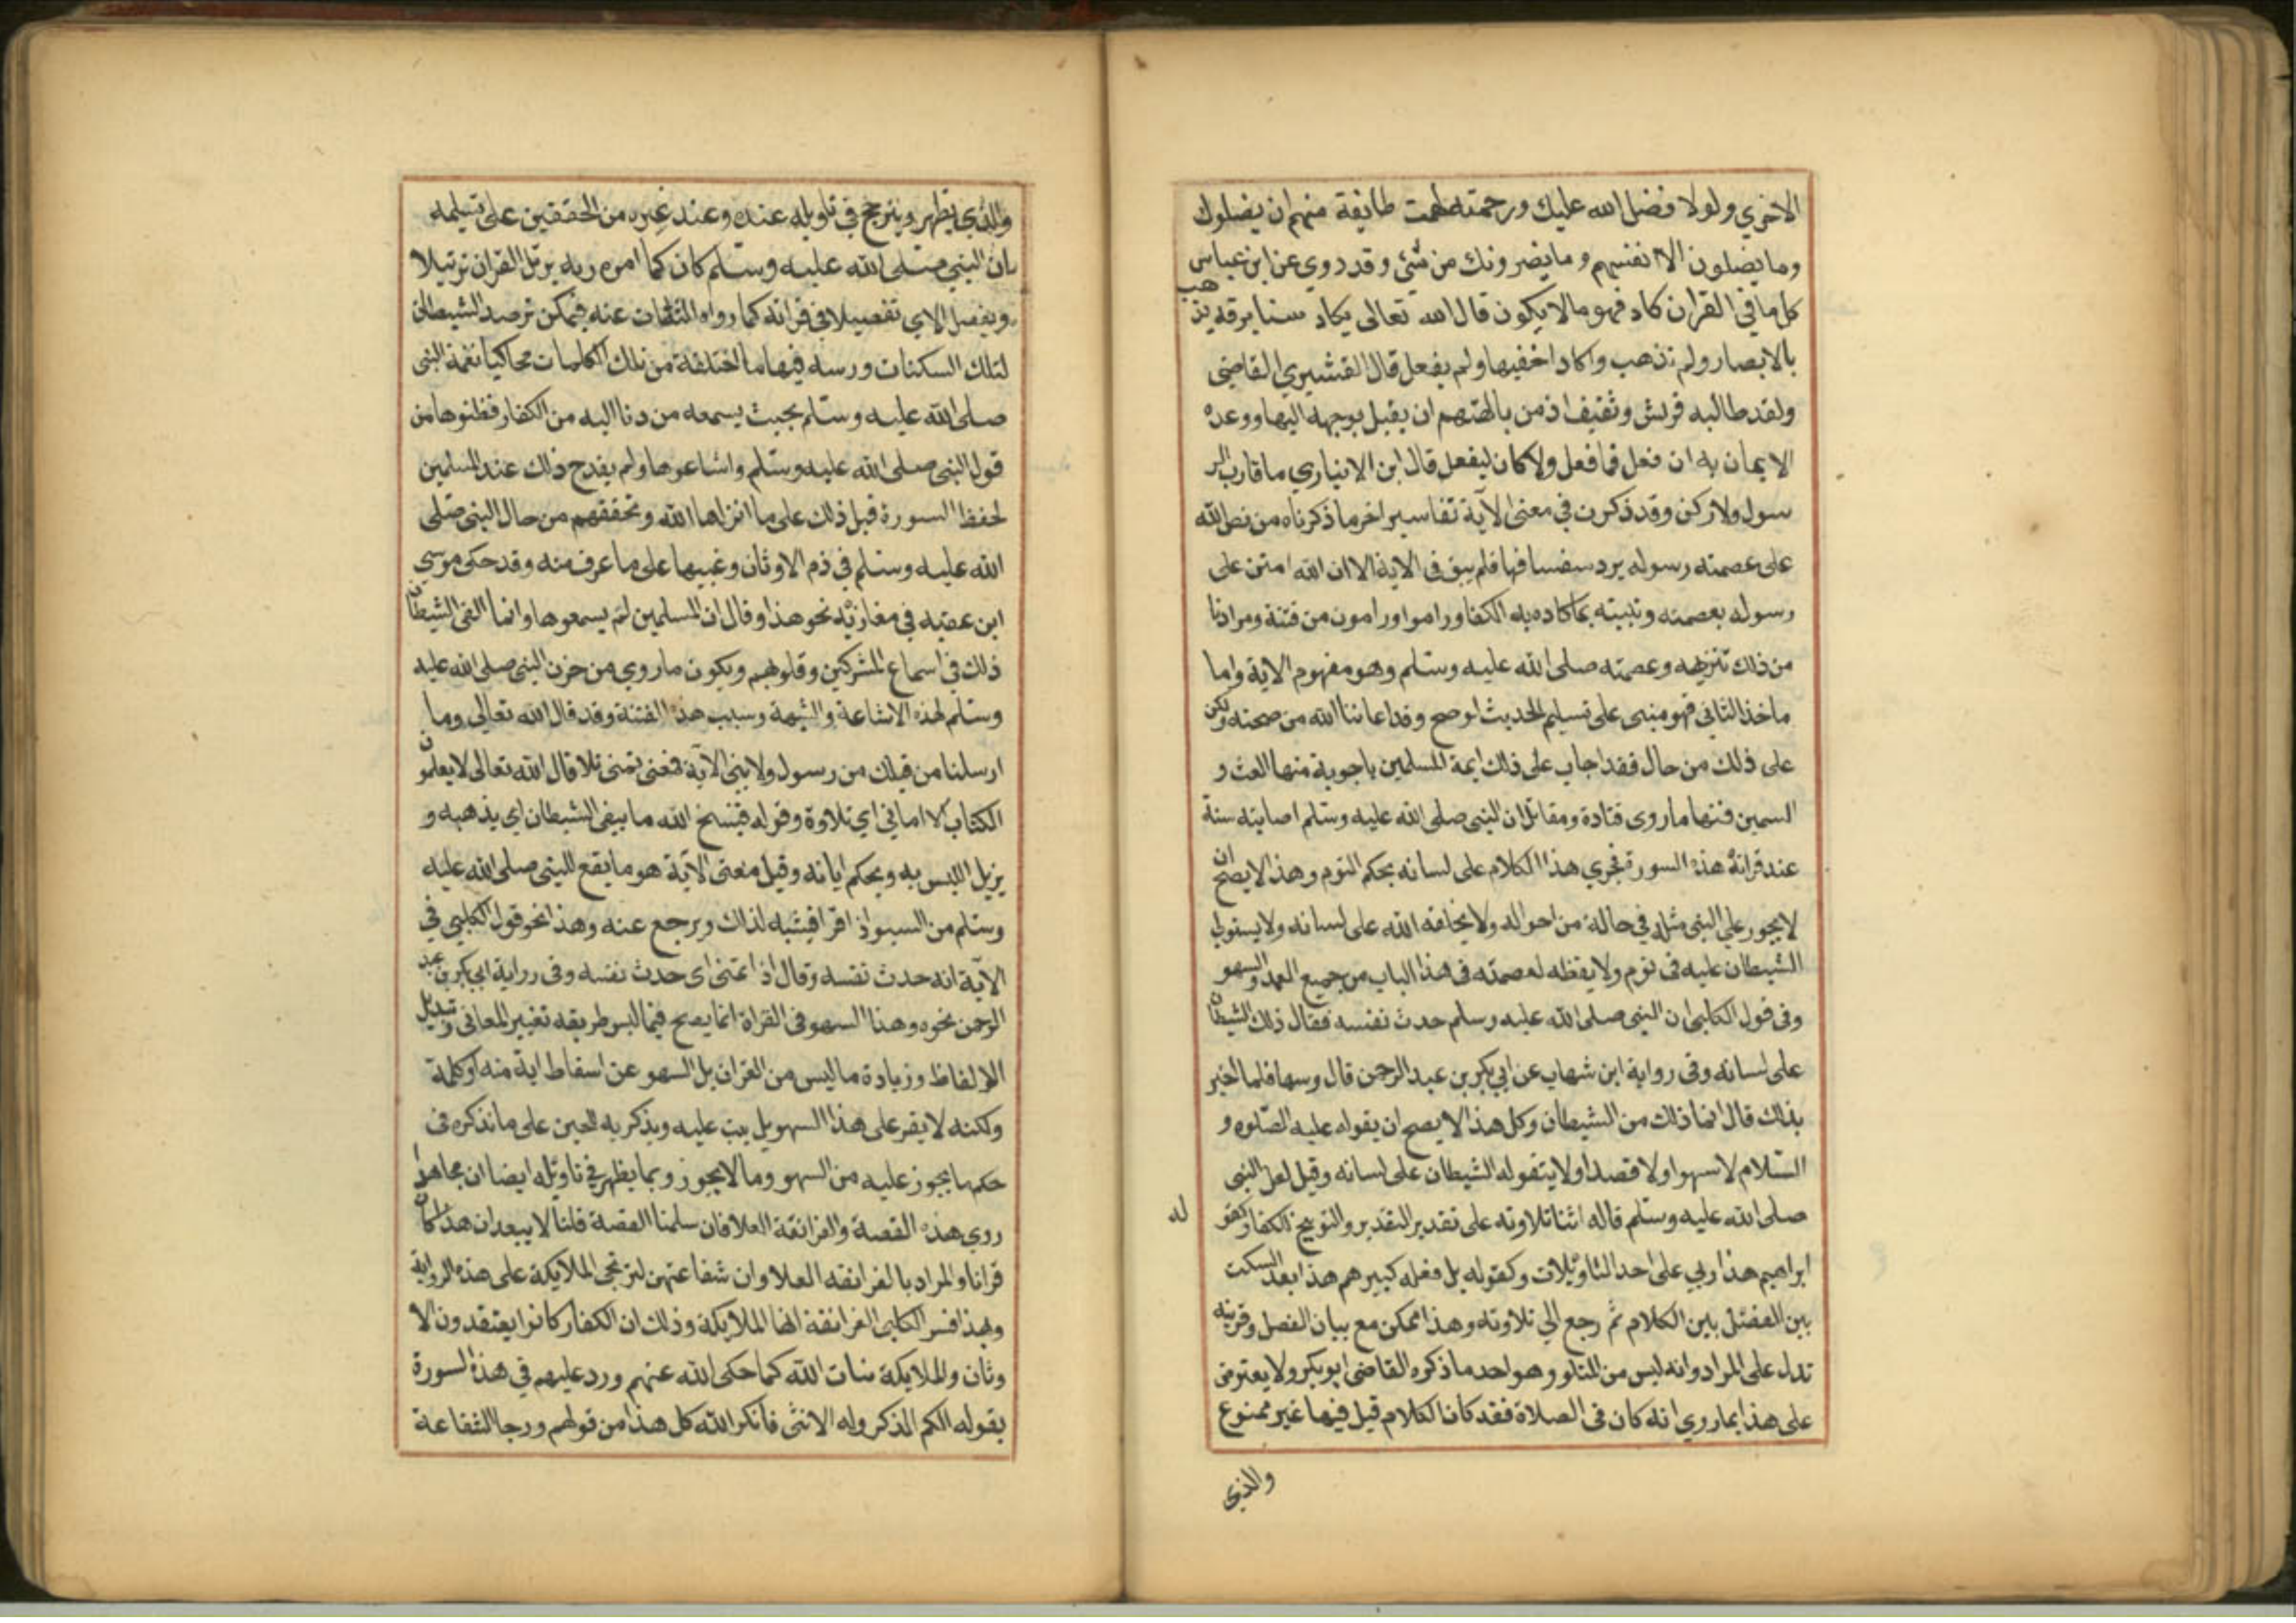 الاخري ولولا فضل الله عليك ورحمته لهمت طايفة منهم ان يضلوك
وما يضلون الا انفسهم وما يضرونك من شئ وقد روي عن ابن عباس
كل ما في القران كاد فهو مالا يكون قال الله تعالى يكاد سنا برقه يذهب
بالابصار ولم تذهب واكاد اخفيها ولم يفعل قال القشيري القاضي
ولقد طالبه قريش وثقيف اذ من بالهتهم ان يقبل بوجهه اليها ووعده
الايمان به ان فعل فما فعل ولا كان ليفعل قال ابن الانباري ما قارب الر
سول ولا ركن وقد ذكرت في معنى الآية تفاسير اخر ما ذكرناه من نص الله
على عصمته رسوله يرد سفسافها فلم يبق في الاية الا ان الله امتن على
رسوله بعصمته وتثبيته بما كاده به الكفار وراموا من فتنة ومرادنا
من ذلك تنزيهه وعصمته صلى الله عليه وسلم وهو مفهوم الاية واما
ماخذ الثاني فهو مبني على تسليم الحديث لوصح وقد اعاذنا الله من صحته ولكن
على ذلك من حال فقد اجاب على ذلك ايمة المسلمين باجوبة منها الغث و
السمين فمنها ما روى قتادة ومقاتل ان النبى صلى الله عليه وسلم اصابته سنة
عند قرانة هذه السورة فجري هذا الكلام على لسانه بحكم النوم وهذا لا يصح ان
لا يجوز على النبى مثله في حالة من احواله ولا يخلقه الله على لسانه ولا يستولى
الشيطان عليه فى نوم ولا يقظه لعصمته فى هذا الباب من جميع العمد والسهو
وفى قول الكلبى ان النبى صلى الله عليه وسلم حدث نفسه فقال ذلك الشيطان
على لسانه وفى رواية ابن شهاب عن ابي بكر بن عبد الرحمن قال وسها فلما اخبر
بذلك قال انما ذلك من الشيطان وكل هذا لا يصح ان يقوله عليه الصلوه و
السلام لا سهوا ولا قصدا ولا يتقوله الشيطان على لسانه وقيل لعل النبى
صلى الله عليه وسلم قاله اثنا تلاوته على تقدير التقدير والتوبيخ للكفار كقو
له
ابراهيم هذا ربي على احد التاويلات وكقوله بل فعله كبيرهم هذا بعد السكت
بين الفصل بين الكلام ثم رجع الي تلاوته وهذا ممكن مع بيان الفصل وقرينه
تدل على المراد وانه ليس من المتلو وهو احد ما ذكره القاضى ابو بكر ولا يعترض
على هذا بما روي انه كان فى الصلاة فقد كان الكلام قبل فيها غير ممنوع
والذي
والذي يظهر ويترجح في تاويله عنده وعند غيره من المحققين على تسليمه
بان النبى صلى الله عليه وسلم كان كما امره ربه يرتل القران ترتيلا
ويفصل الاي تفصيلا في قرانه كما رواه الثقات عنه فيمكن ترصد الشيطان
لتلك السكتات ودسه فيها ما اختلقة من تلك الكلمات محاكيا نغمة النبى
صلى الله عليه وسلم بحيث يسمعه من دنا اليه من الكفار فظنوها من
قول النبى صلى الله عليه وسلم واشاعوها ولم يقدح ذلك عند المسلمين
لحفظ السورة قبل ذلك على ما انزلها الله وتحققهم من حال النبى صلى
الله عليه وسلم في ذم الاوثان وعيبها على ما عرف منه وقد حكى موسي
ابن عقبه في مغازيه نحو هذا وقال ان المسلمين لم يسمعوها وانما القى الشيطان
ذلك في اسماع المشركين وقلوبهم ويكون ما روي من حزن النبى صلى الله عليه
وسلم لهذه الاشاعة والشبهة وسبب هذه الفتنة وقد قال الله تعالي وما
ارسلنا من قبلك من رسول ولا نبى الآية فمعنى تمنى تلا قال الله تعالى لا يعلمون
الكتاب الا اماني اي تلاوة وقوله فينسخ الله ما يلقى الشيطان اي يذهبه و
يزيل اللبس به ويحكم اياته وقيل معنى الآية هو ما يقع للنبى صلى الله عليه
وسلم من السهو اذ اقرا فيتنبه لذلك ويرجع عنه وهذا نحو قول الكلبي في
الآية انه حدث نفسه وقال اذا تمنى اى حدث نفسه وفى رواية ابي بكر بن عبد
الرحمن نحوه وهذا السهو فى القراة انما يصح فيما ليس طريقه تغيير المعانى وتبديل
الالفاظ وزيادة ما ليس من القران بل السهو عن اسقاط اية منه او كلمة
ولكنه لا يقر على هذا السهو بل ينبه عليه ويذكر به للحين على ما نذكره فى
حكم ما يجوز عليه من السهو وما لا يجوز ومما يظهر في تاويله ايضا ان مجاهدا
روي هذه القصة والغرانقة العلا فان سلمنا القصة قلنا لا يبعد ان هذا كان
قرانا والمراد بالغرانقه العلا وان شفاعتهن لترتجى الملايكة على هذه الرواية
وبهذا فسر الكلبى الغرانقة انها الملايكة وذلك ان الكفار كانوا يعتقدون الا
وثان والملايكة بنات الله كما حكى الله عنهم ورد عليهم في هذه السورة
بقوله الكم الذكر وله الانثى فانكر الله كل هذا من قولهم ورجا الشفاعة